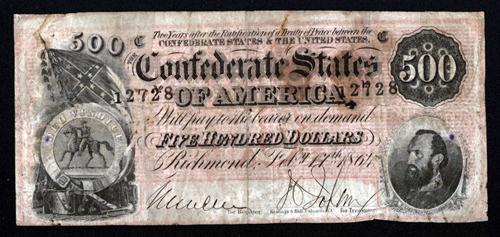 Two Years after the Ratification of a Treaty of Peace between the
CONFEDERATE STATES & THE UNITED STATES,
500 C
C
THE
Confederate States
500
12728
12728
OF AMERICA
Will pay to the bearer on demand
FIVE HUNDRED DOLLARS
Richmond, Feby 17th 1864
for Register
Keatinge & Ball, Columbia, S.C.
for Treasurer